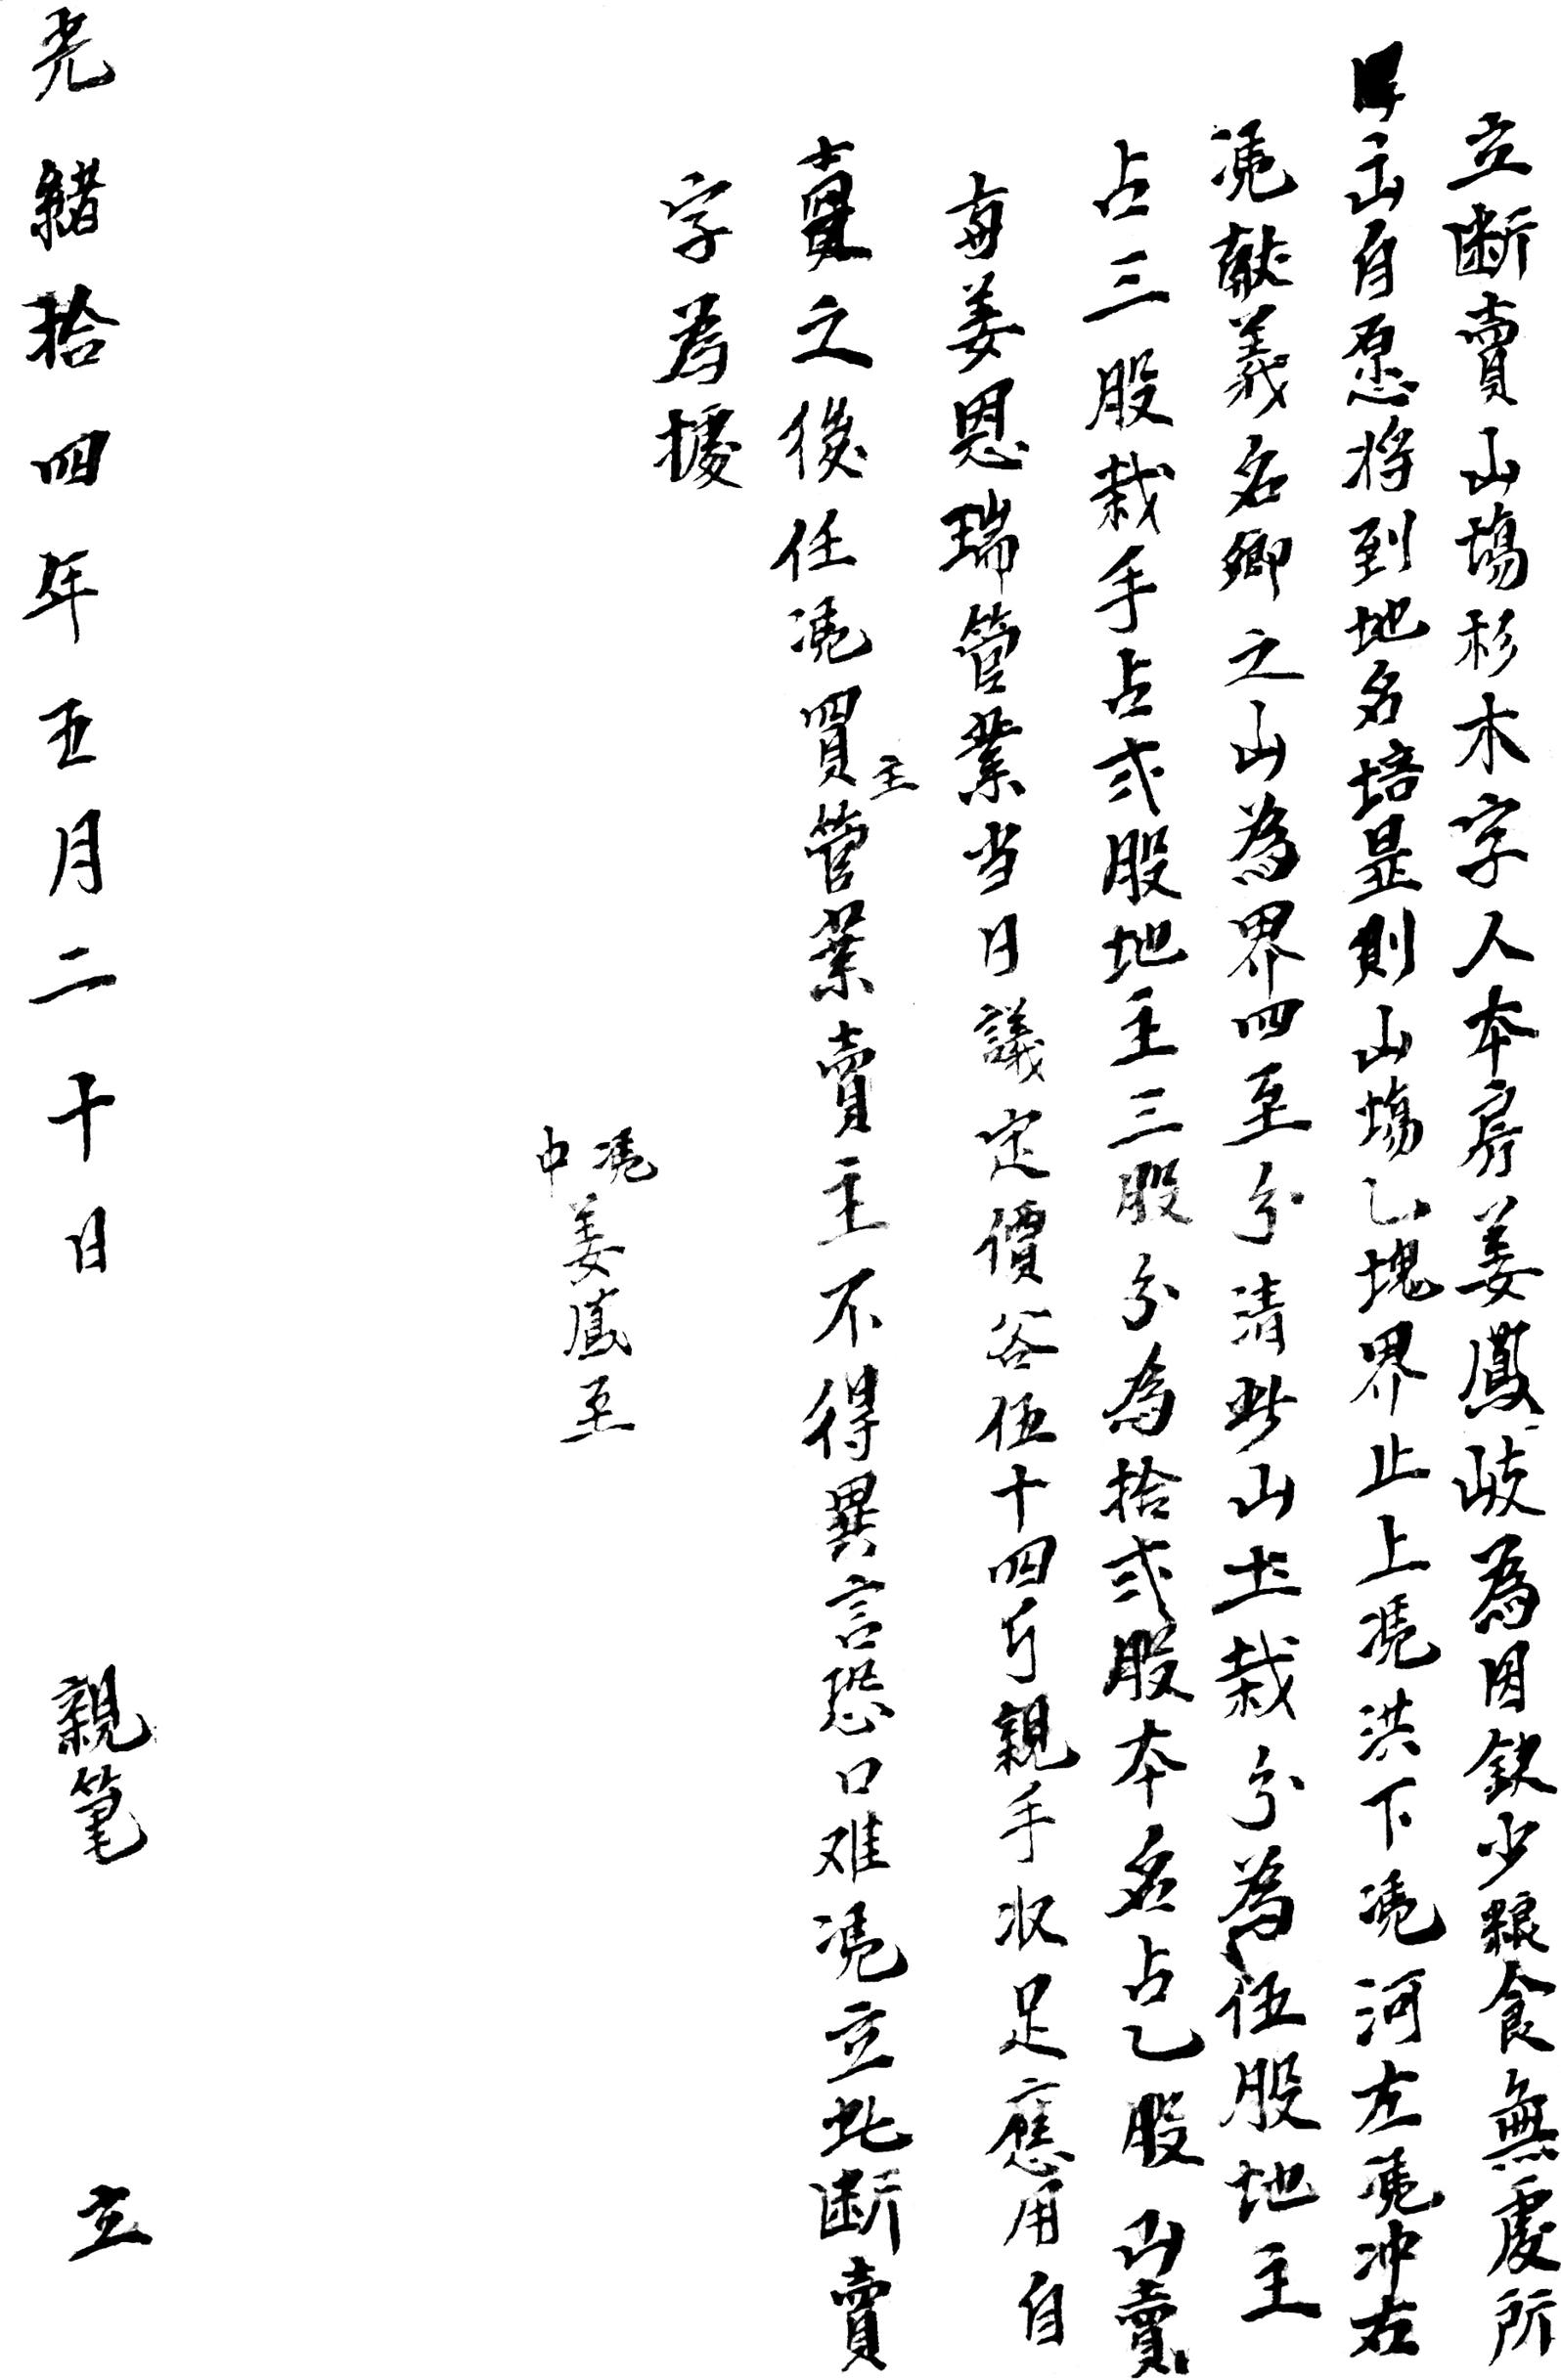 立断賣山塲杉木字人本房姜鳳岐為因缺少粮食無處所
出自愿将到地名培显則山塲乙塊界止上凴洪下凴河左凴冲右
凴献義名卿之山為界四至分清此山土栽分為伍股地主
占三股栽手占弍股地主三股分為拾弍股本名占乙股出賣
与姜恩瑞管業当日議定價谷伍十四斤親手收足應用自
賣之後任凴買主管業賣主不得異言恐口难凴立此断賣
字為據
凴中姜鳳至
光緒拾四年五月二十日 親筆 立